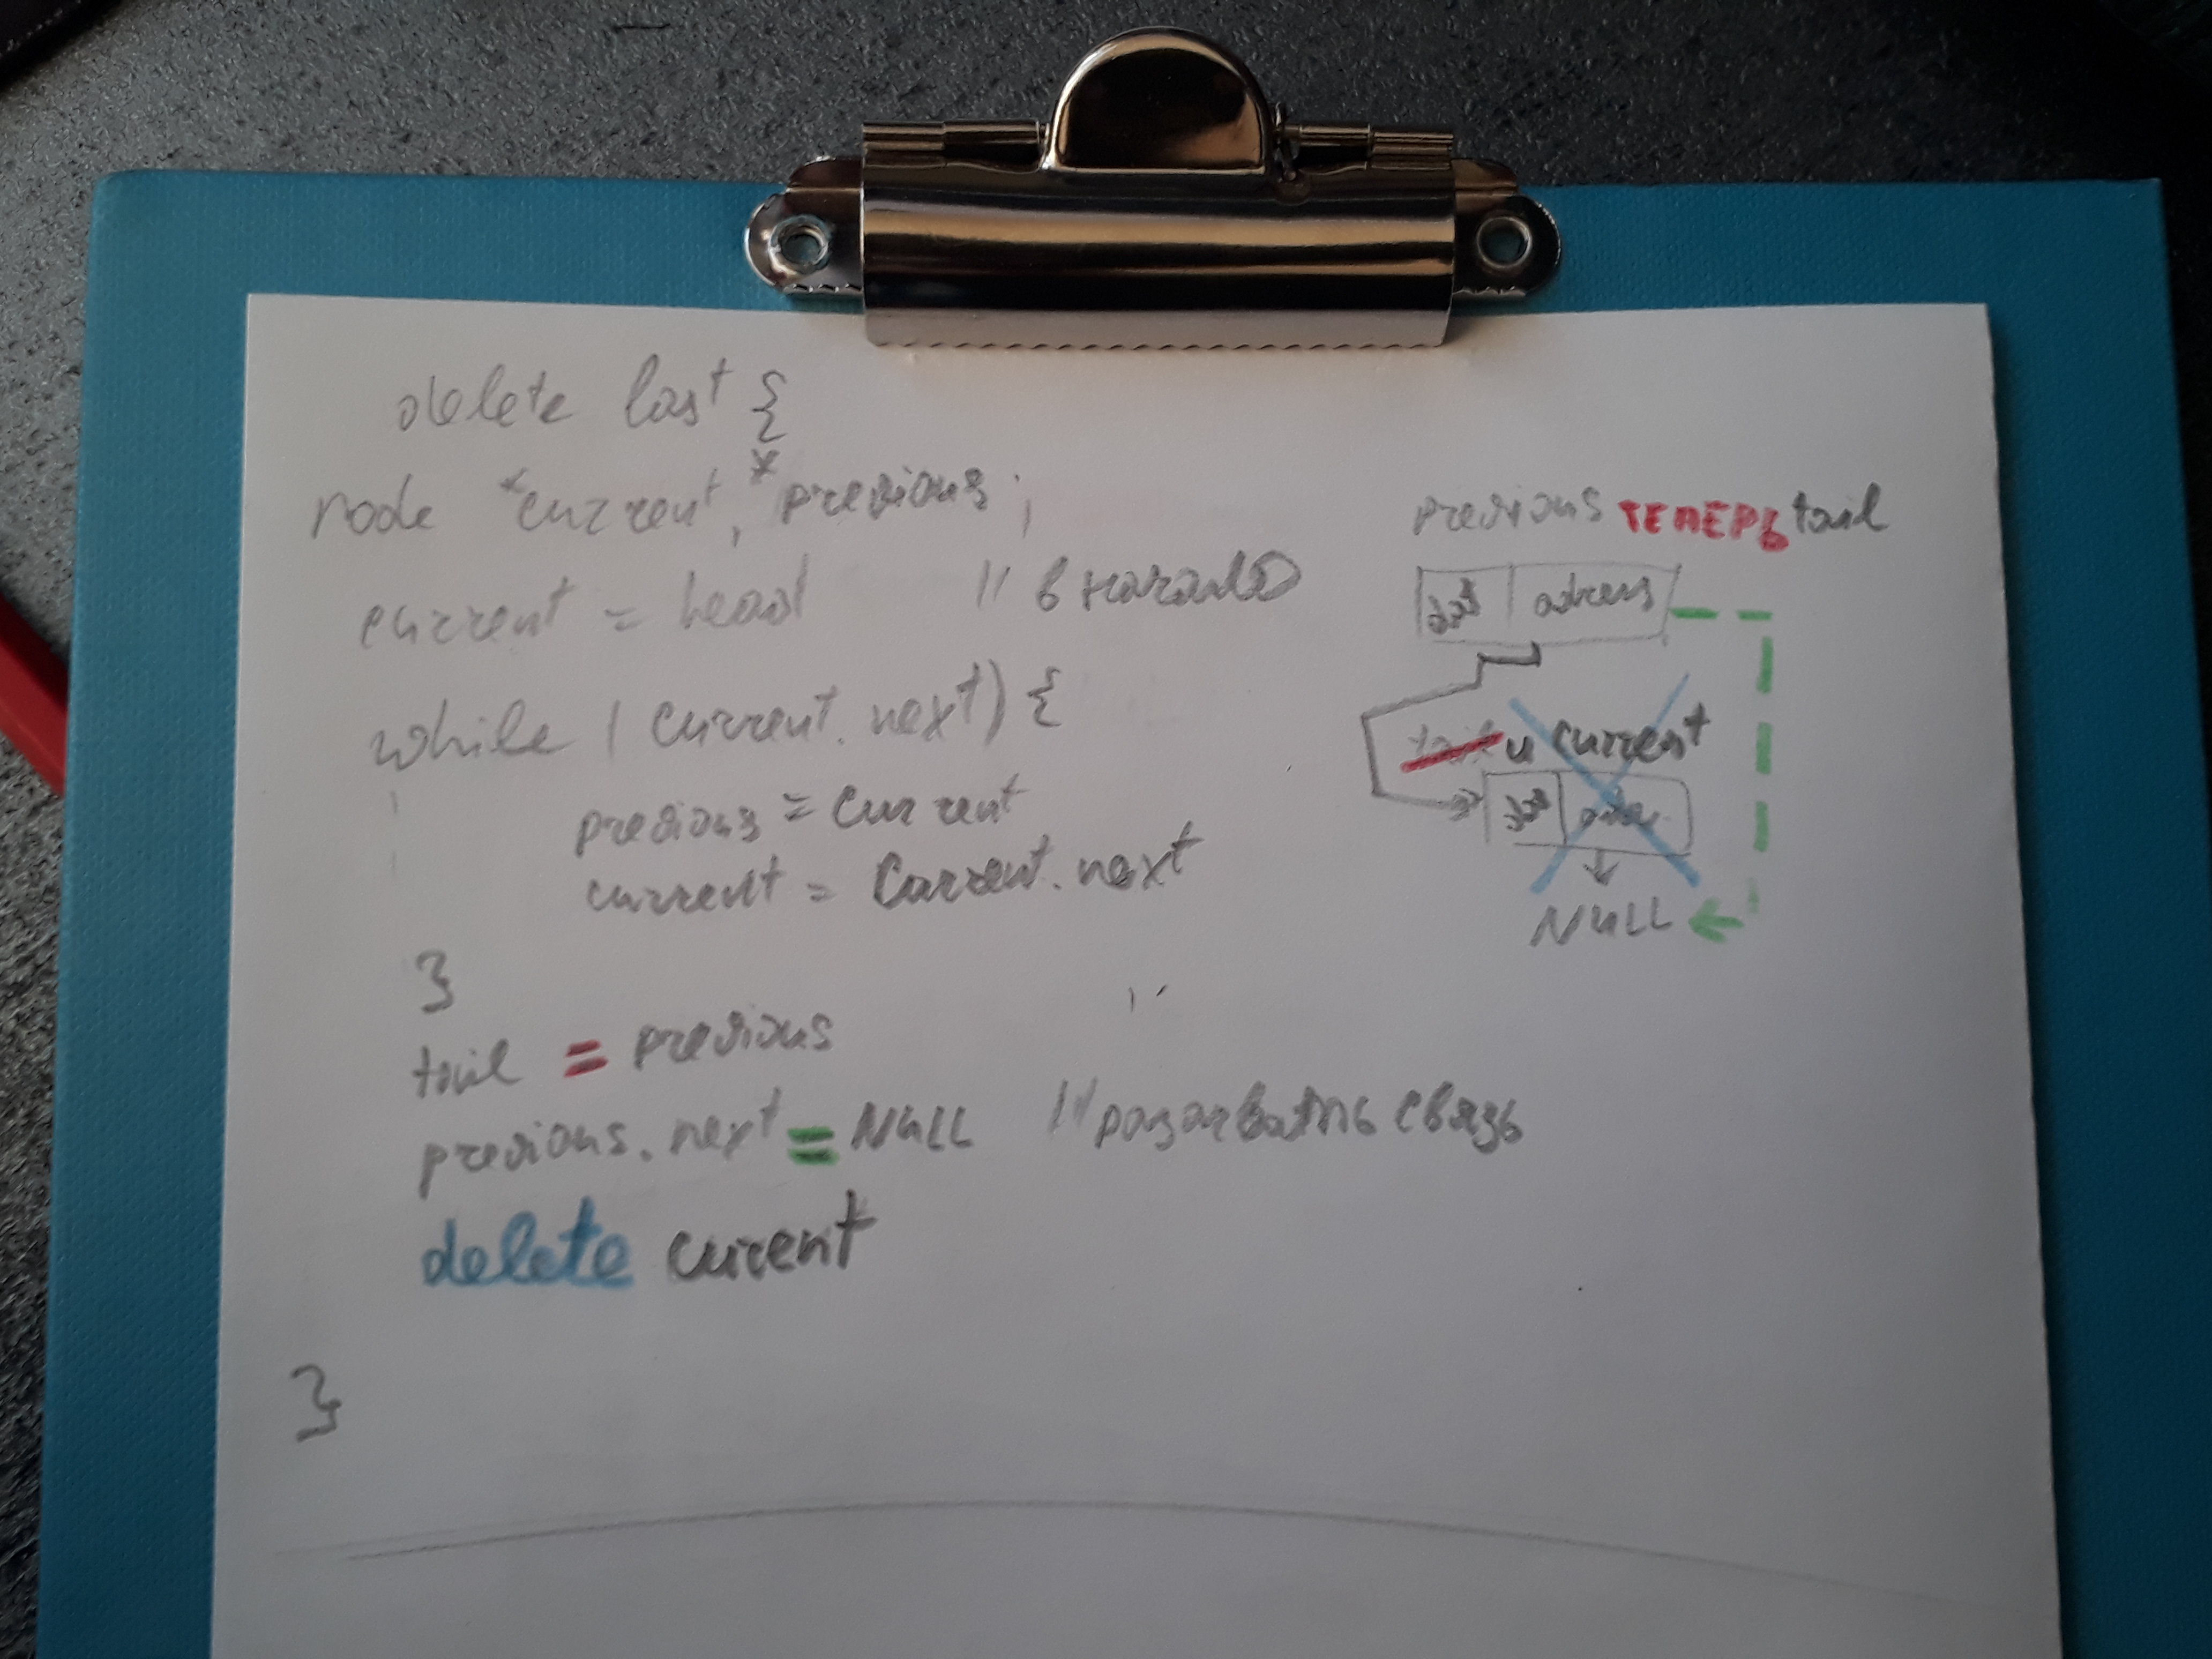 delete last {
node *current, *previous;
current = head // в начало
while (current.next) {
previous = current
current = current.next
}
tail = previous
previous.next = NULL // разорвать связь
delete curent
}
previous ТЕПЕРЬ tail
adress
tail и current
NULL